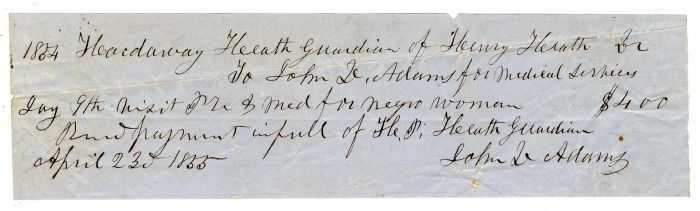 1854 Hardaway Heath Guardian of Henry Heath Dr
To John Q. Adams for Medical Services
Jay 9th visit Pre & Med for negro woman $4.00
Recd payment in full of H. P. Heath Guardian
April 23d 1855 John Q Adams